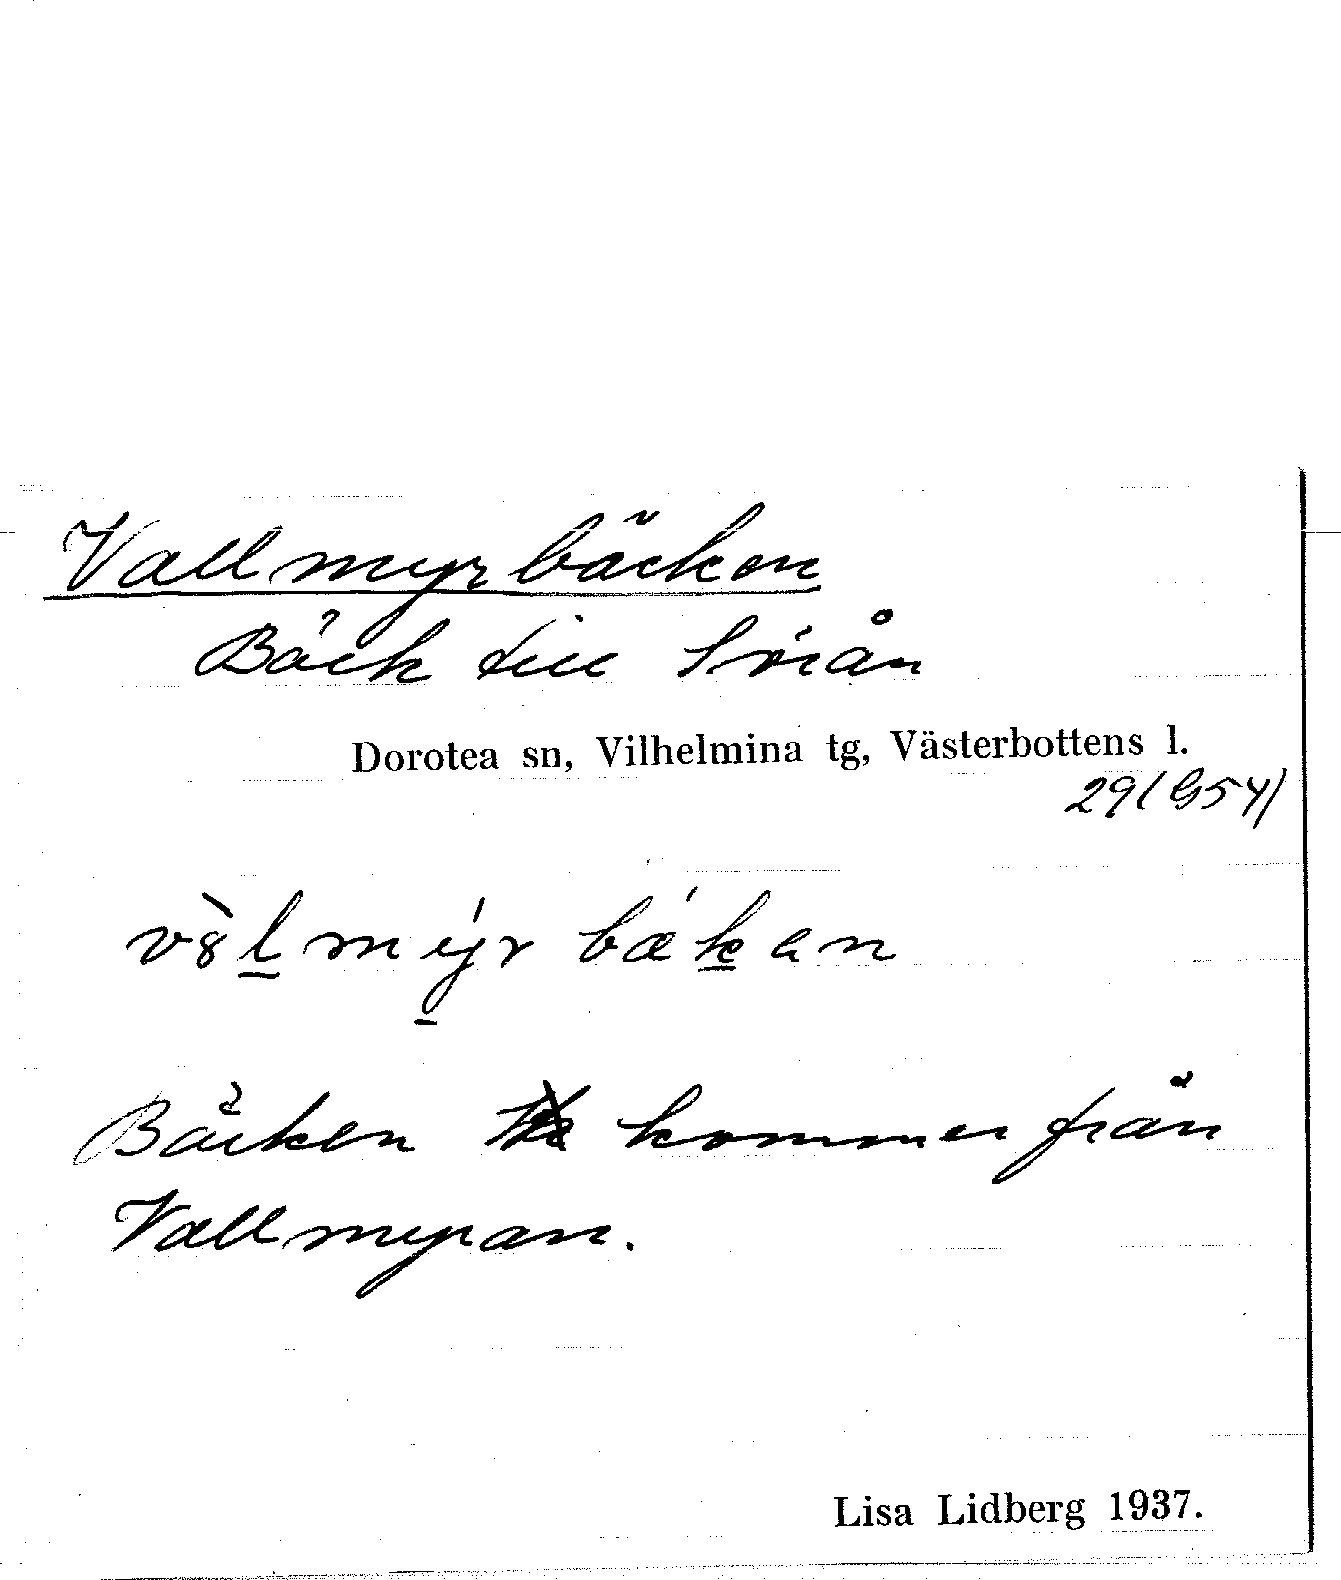 Vallmyrbäcken
Bäck till Sörån
Dorotea sn, Vilhelmina tg, Västerbottens l.
29 (G54)
Bäcken kommer från
Vallmyran.
Lisa Lidberg 1937.